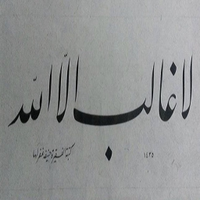 لا غالب إلّا الله
١٤٣٥